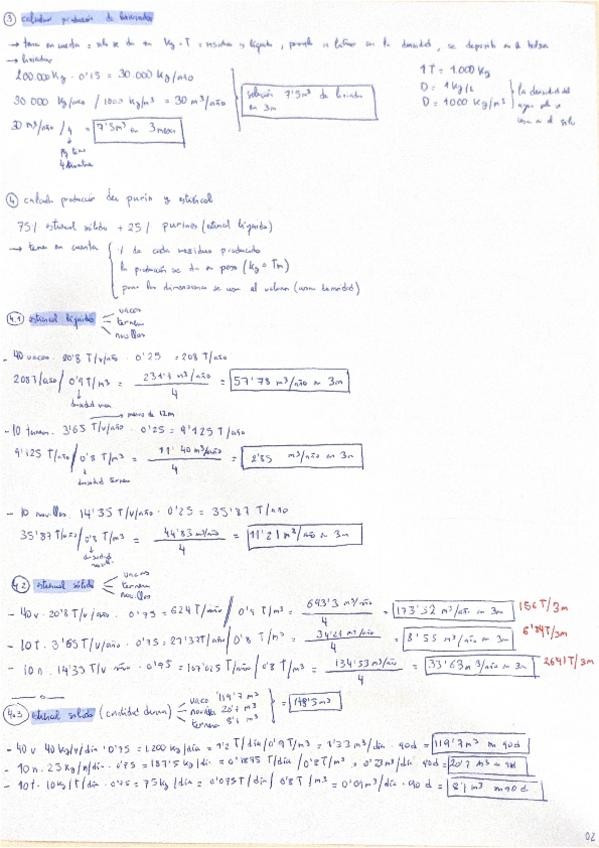 ③ calcular producción de lixiviados
→ tener en cuenta = solo se da en Kg = T = residuo y líquido, se deposita en el
→ lixiviados
200.000 Kg · 0'15 = 30.000 Kg/año
30 000 Kg/año / 1000 Kg/m³ = 30 m³/año
30 m³/año / 4 = 7'5 m³ en 3 meses
solución 7'5 m³ de lixiviado en 3m
1 T = 1.000 Kg
D = 1 Kg/L
D = 1000 Kg/m³
la densidad del agua
④ calcular producción de purin y estiércol
75% estiércol sólido + 25% purines (estiércol líquido)
→ tener en cuenta
% de cada residuo producido
la producción se da en peso (Kg o Tm)
para las dimensiones se usa el volumen (usar densidad)
4.1) estiércol líquido
vacas
terneros
novillas
- 40 vacas · 20'8 T/v/año · 0'25 = 208 T/año
208 T/año / 0'9 T/m³ = m³/año / 4 = 57'78 m³/año en 3m
densidad vaca
menos de 12m
- 10 terner. 3'65 T/v/año · 0'25 = 9'125 T/año
9'125 T/año / 0'8 T/m³ = 11'40 m³/año / 4 = 2'85 m³/año en 3m
densidad ternero
- 10 novillas 14'35 T/v/año · 0'25 = 35'87 T/año
35'87 T/año / 0'8 T/m³ = 44'83 m³/año / 4 = 11'21 m³/año en 3m
densidad novilla
4.2 estiércol sólido
vacas
terneros
novillas
- 40v · 20'8 T/v/año · 0'75 = 624 T/año / 0'9 T/m³ = 693'3 m³/año / 4 = 173'32 m³/año en 3m 156 T/3m
- 10 t · 3'65 T/v/año · 0'75 = 27'37 T/año / 0'8 T/m³ = 34'21 m³/año / 4 = 8'55 m³/año en 3m 6'84 T/3m
- 10 n · 14'35 T/v año · 0'75 = 107'625 T/año / 0'8 T/m³ = 134'53 m³/año / 4 = 33'63 m³/año en 3m 26'91 T/3m
4.3 estiércol sólido (cantidad diaria)
vaca 119'7 m³
novillas 20'7 m³
terneros 8'1 m³
= 148'5 m³
- 40 v · 40 kg/v/día · 0'75 = 1.200 kg/día = 1'2 T/día / 0'9 T/m³ = 1'33 m³/día · 90d = 119'7 m³ en 90d
- 10 n · 25 kg/n/día · 0'75 = 187'5 kg/día = 0'1875 T/día / 0'8 T/m³ = 0'23 m³/día · 90d = 20'7 m³ en 90d
- 10 t · 10 kg/T/día · 0'75 = 75 kg/día = 0'075 T/día / 0'8 T/m³ = 0'09 m³/día · 90 d = 8'1 m³ en 90d
02